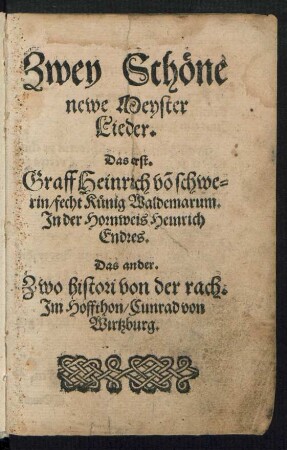 Zwey Schöne
newe Meyster
Lieder.
Das erst.
Graff Heinrich vō schwe-
rin/fecht Künig Waldemarum.
In der Hornweis Heinrich
Endres.
Das ander.
Zwo histori von der rach.
Im Hoffthon/Cunrad von
Wirtzburg.